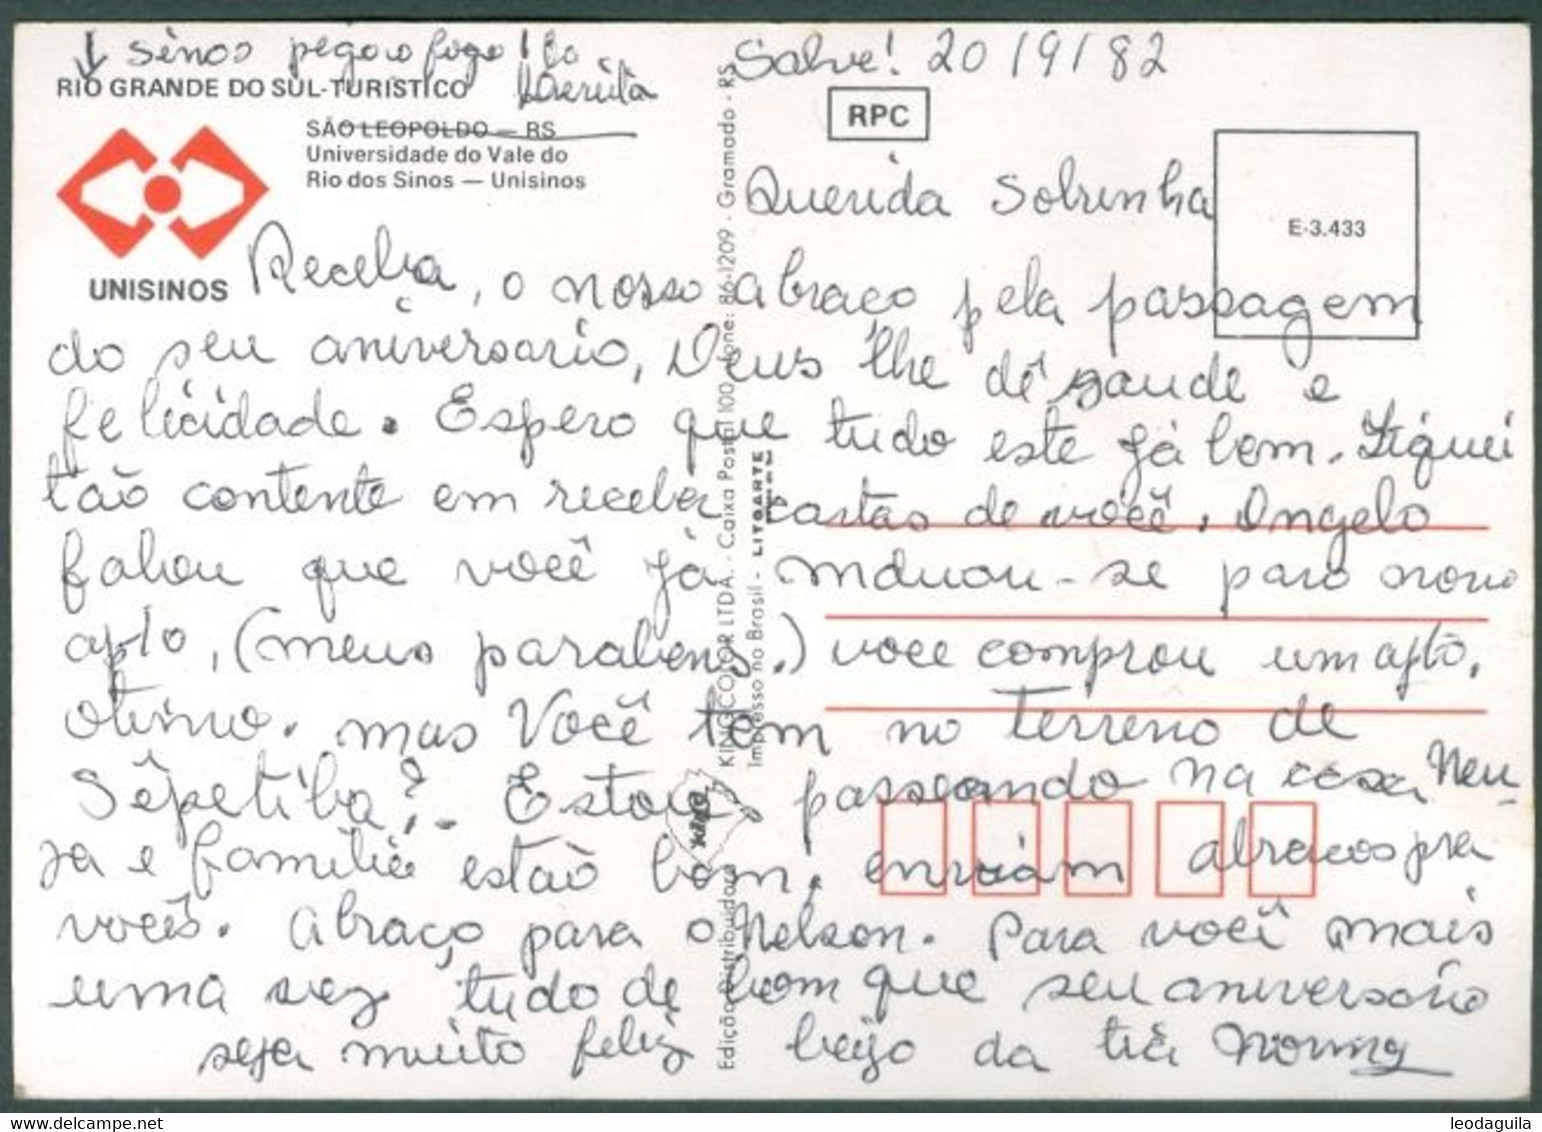 Sinos pegou fogo!
RIO GRANDE DO SUL-TURÍSTICO
SÃO LEOPOLDO — RS
Universidade do Vale do
Rio dos Sinos — Unisinos
UNISINOS
Salve! 20/9/82
RPC
E-3.433
Querida Sobrinha
Receba, o nosso abraço pela passagem
do seu aniversario, Deus lhe dê saude e
felicidade. Espero que tudo este já bem. Fiquei
tão contente em receber cartas de você. Angelo
falou que você já mduou-se para novo
apto, (meus parabens.) voce comprou um apto.
otimo. mas Você tem no terreno de
Sêpetiba?. Estou passeando na casa Neu-
za e familia estão bem, enviam abracos pra
vocês. Abraço para o Nelson. Para você mais
uma vez tudo de bom que seu aniversario
seja muito feliz beijo da tia
Edição e Distribuidora KINGCOLOR LTDA. - Caixa Postal 100 - Fone: 86-1209 - Gramado - RS
Impresso no Brasil - LITOARTE